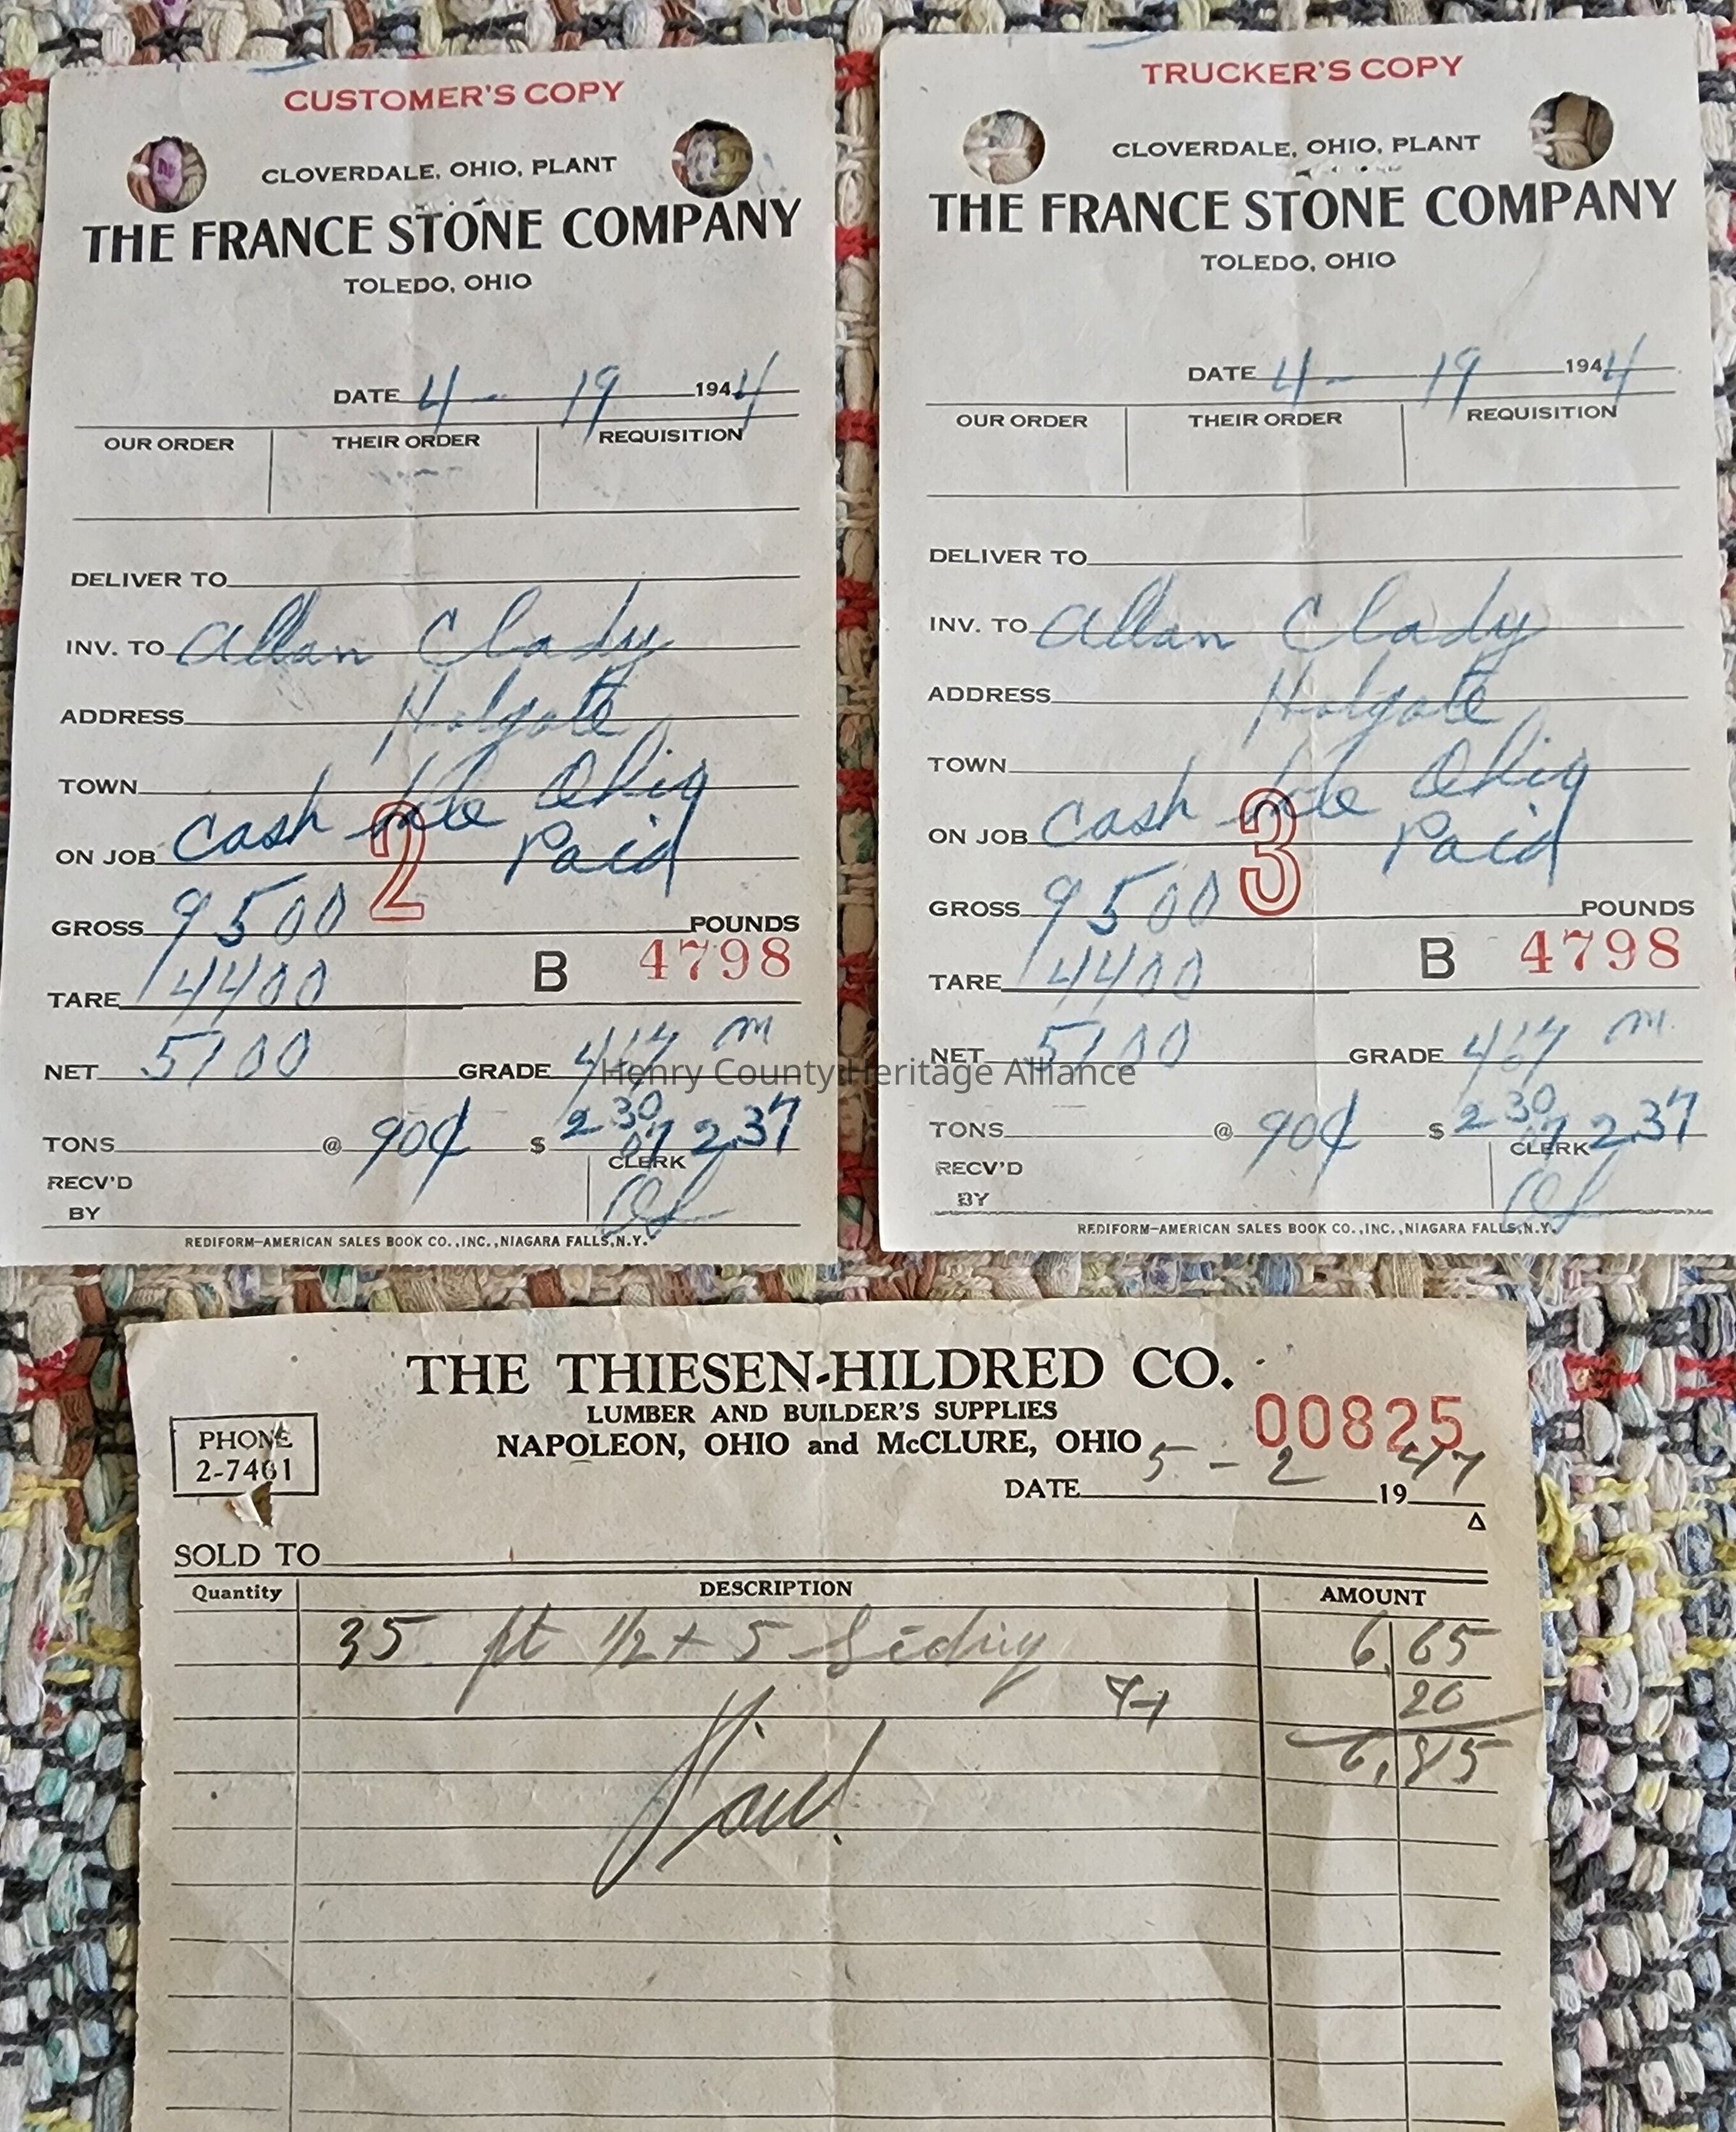 CUSTOMER'S COPY
CLOVERDALE, OHIO, PLANT
THE FRANCE STONE COMPANY
TOLEDO, OHIO
DATE 4 - 19 1944
OUR ORDER THEIR ORDER REQUISITION
DELIVER TO
INV. TO Allan Clady
ADDRESS Holgate
TOWN Ohio
ON JOB Cash Paid
2
GROSS 9500 POUNDS
TARE 4400 B 4798
NET 5100 GRADE m
TONS @ 90¢ $ 2 30 07 2.37
RECV'D BY CLERK
REDIFORM-AMERICAN SALES BOOK CO., INC., NIAGARA FALLS, N.Y.
TRUCKER'S COPY
CLOVERDALE, OHIO, PLANT
THE FRANCE STONE COMPANY
TOLEDO, OHIO
DATE 4 - 19 1944
OUR ORDER THEIR ORDER REQUISITION
DELIVER TO
INV. TO Allan Clady
ADDRESS Holgate
TOWN Ohio
ON JOB Cash Paid
3
GROSS 9500 POUNDS
TARE 4400 B 4798
NET 5100 GRADE m
TONS @ 90¢ $ 2 30 7 2.37
RECV'D BY CLERK
REDIFORM-AMERICAN SALES BOOK CO., INC., NIAGARA FALLS, N.Y.
Henry County Heritage Alliance
THE THIESEN-HILDRED CO.
LUMBER AND BUILDER'S SUPPLIES
NAPOLEON, OHIO and McCLURE, OHIO
00825
PHONE
2-7461
DATE 5 - 2 1947
SOLD TO
Quantity DESCRIPTION AMOUNT
35 ft 1/2 x 5 Siding 6.65
20
6.85
Paid